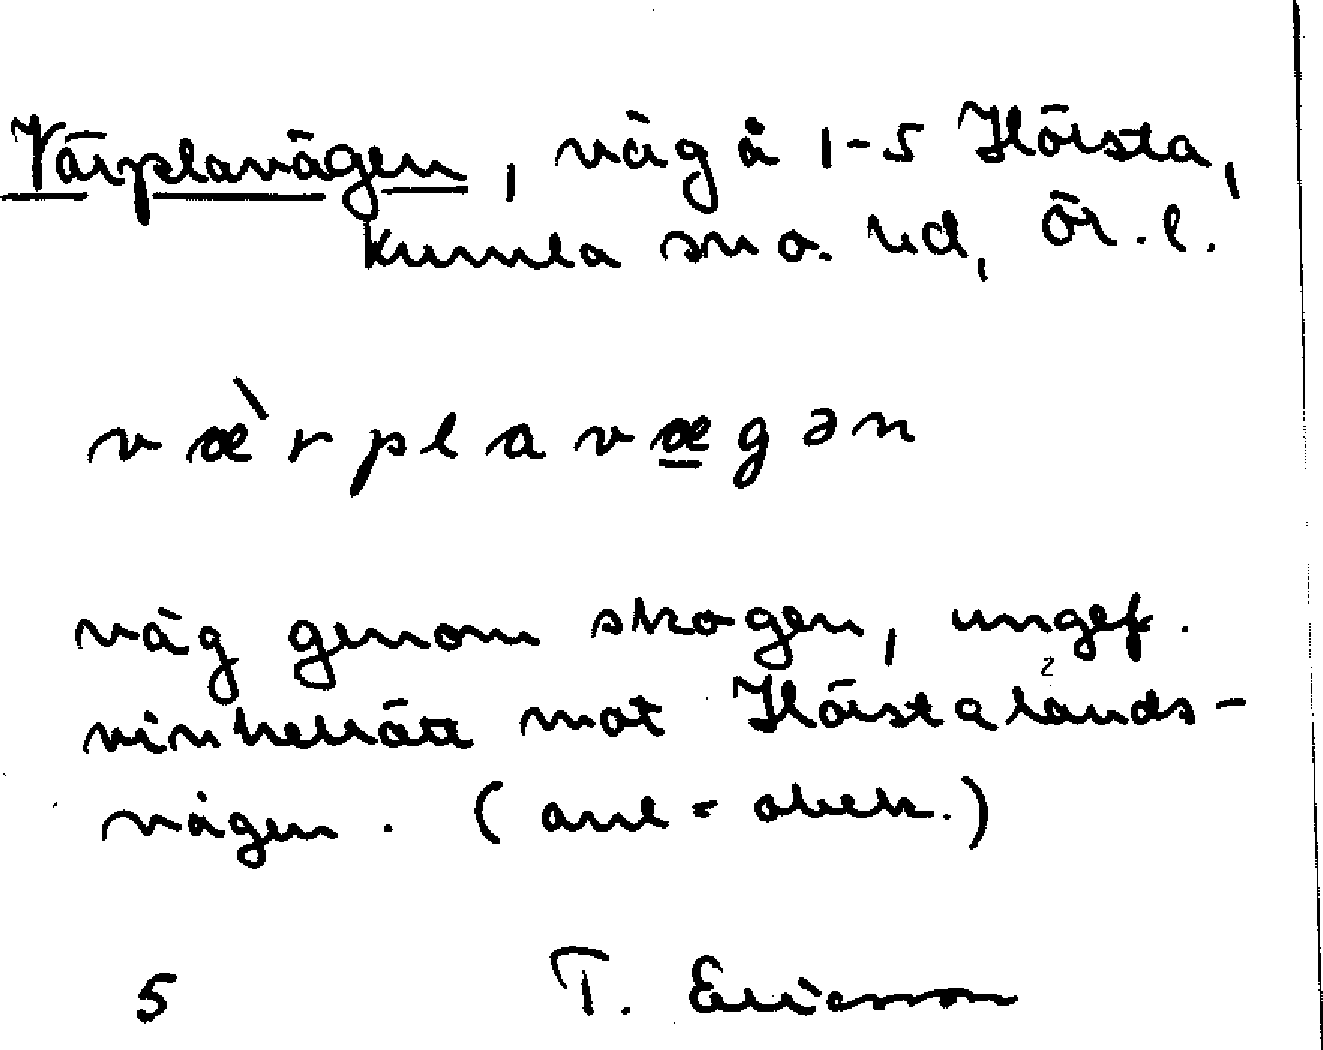 Värplavägen, väg å 1-5 Hörsta,
Kumla sn o. hd, Ör. l.
væ̀rplavægən
väg genom skogen, ungef.
vinkelrätt mot Hörstalands-
vägen. (anl = obek.)
5 T. Ericsson